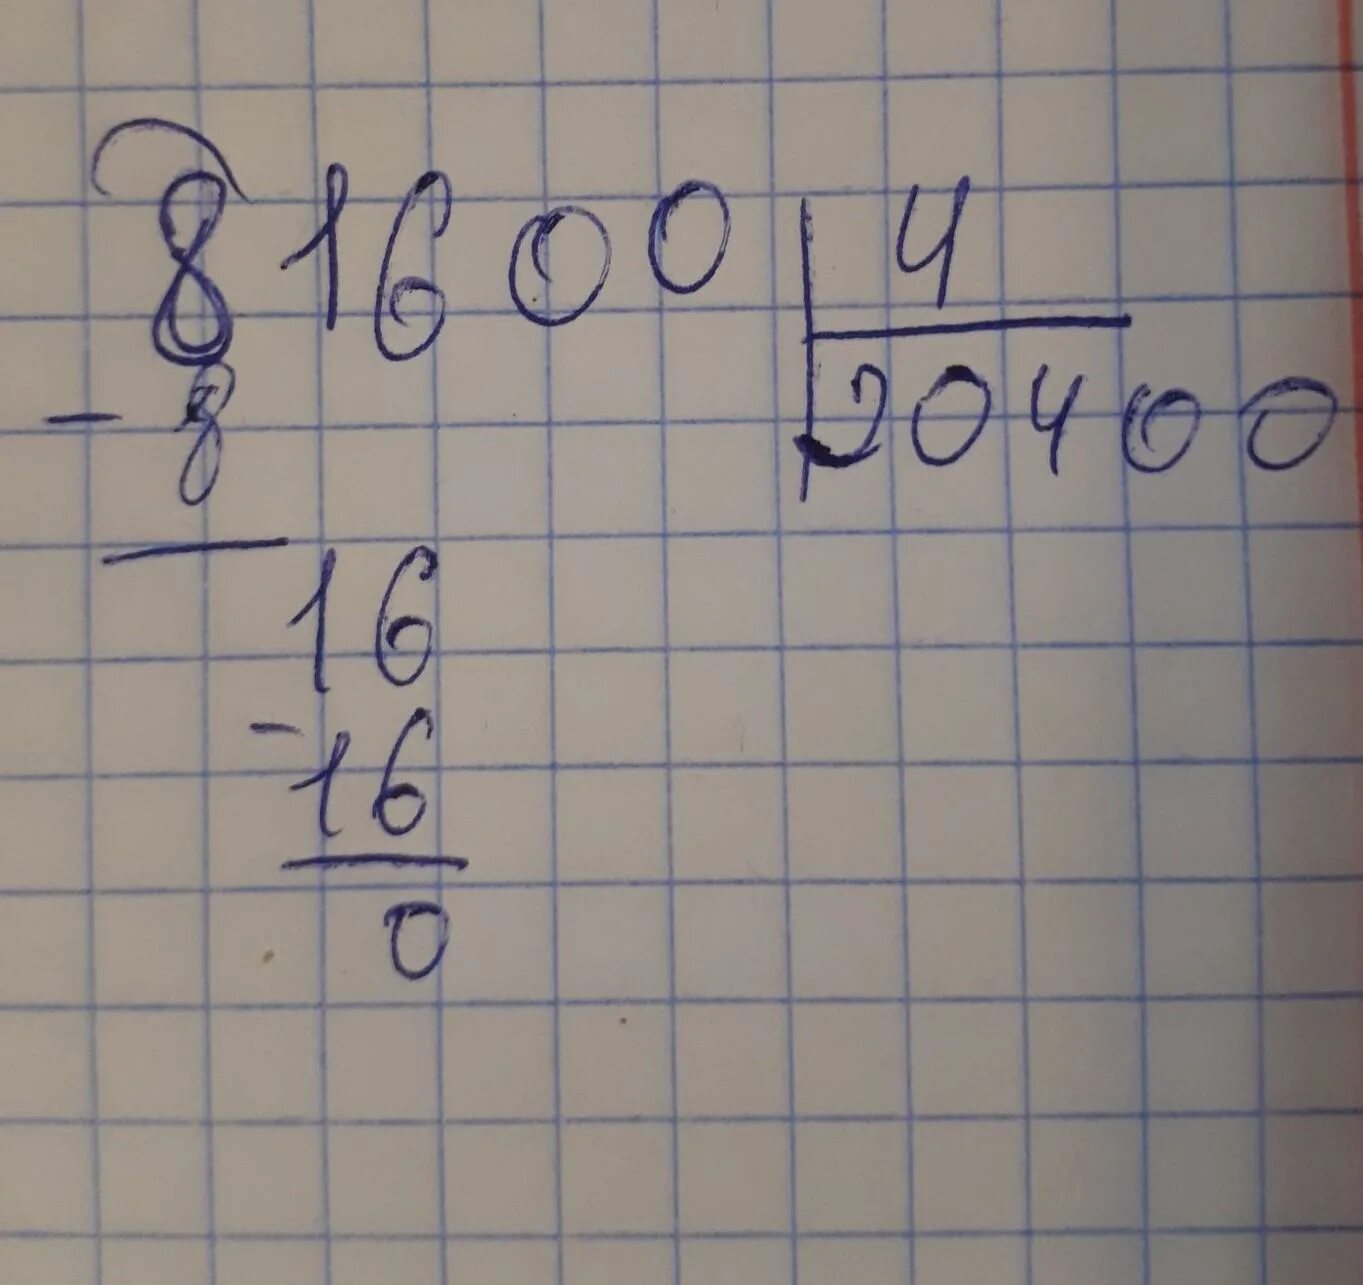 81600 4
- 8 20400
16
- 16
0